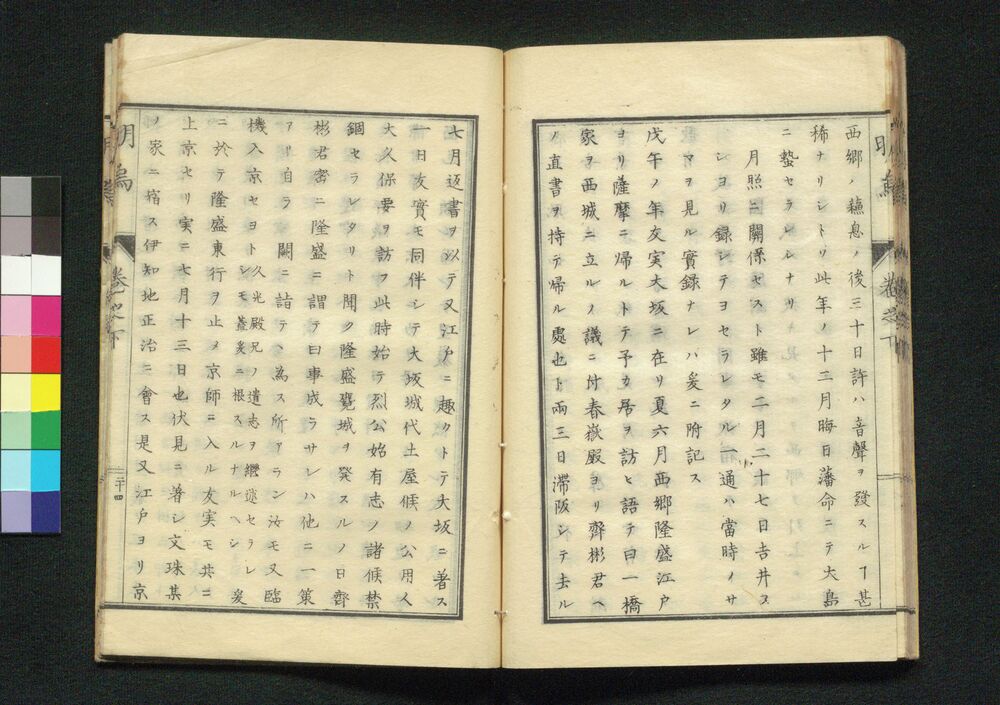 西郷ノ蘇息ノ後三十日許ハ音聲ヲ發スルヿ甚
稀ナリシトソ此年ノ十二月晦日藩命ニテ大島
ニ蟄セラレシナリ
月照ニ關係セスト雖モ二月二十七日吉井ヌ
シヨリ録シテヨセラレタル一通ハ當時ノサ
マヲ見ル實録ナレハ爰ニ附記ス
戊午ノ年友実大坂ニ在リ夏六月西郷隆盛江戸
ヨリ薩摩ニ帰ルトテ予カ居ヲ訪ヒ語テ曰一橋
家ヲ西城ニ立ルノ議ニ付春嶽殿ヨリ齊彬君ヘ
ノ直書ヲ持テ帰ル處也ト両三日滞阪シテ去ル
七月返書ヲ以テ又江戸ニ趣クトテ大坂ニ著ス
一日友實モ同伴シテ大坂城代土屋候ノ公用人
大久保要ヲ訪フ此時始テ烈公始有志ノ諸候禁
錮セラレタリト聞ク隆盛麑城ヲ発スルノ日齊
彬君密ニ隆盛ニ謂テ曰事成ラサレハ他ニ一策
アリ自ラ 闕ニ詣テ為ス所アラン汝モ又臨
機入京セヨト久光殿兄ノ遺志ヲ継述セラレ
シモ蓋爰ニ根スルナルヘシ爰
ニ於テ隆盛東行ヲ止メ京師ニ入ル友実モ共ニ
上京セリ実ニ七月十三日也伏見ニ著シ文珠某
ノ家ニ宿ス伊知地正治ニ會ス是又江戸ヨリ京
明烏
巻之下
二十四